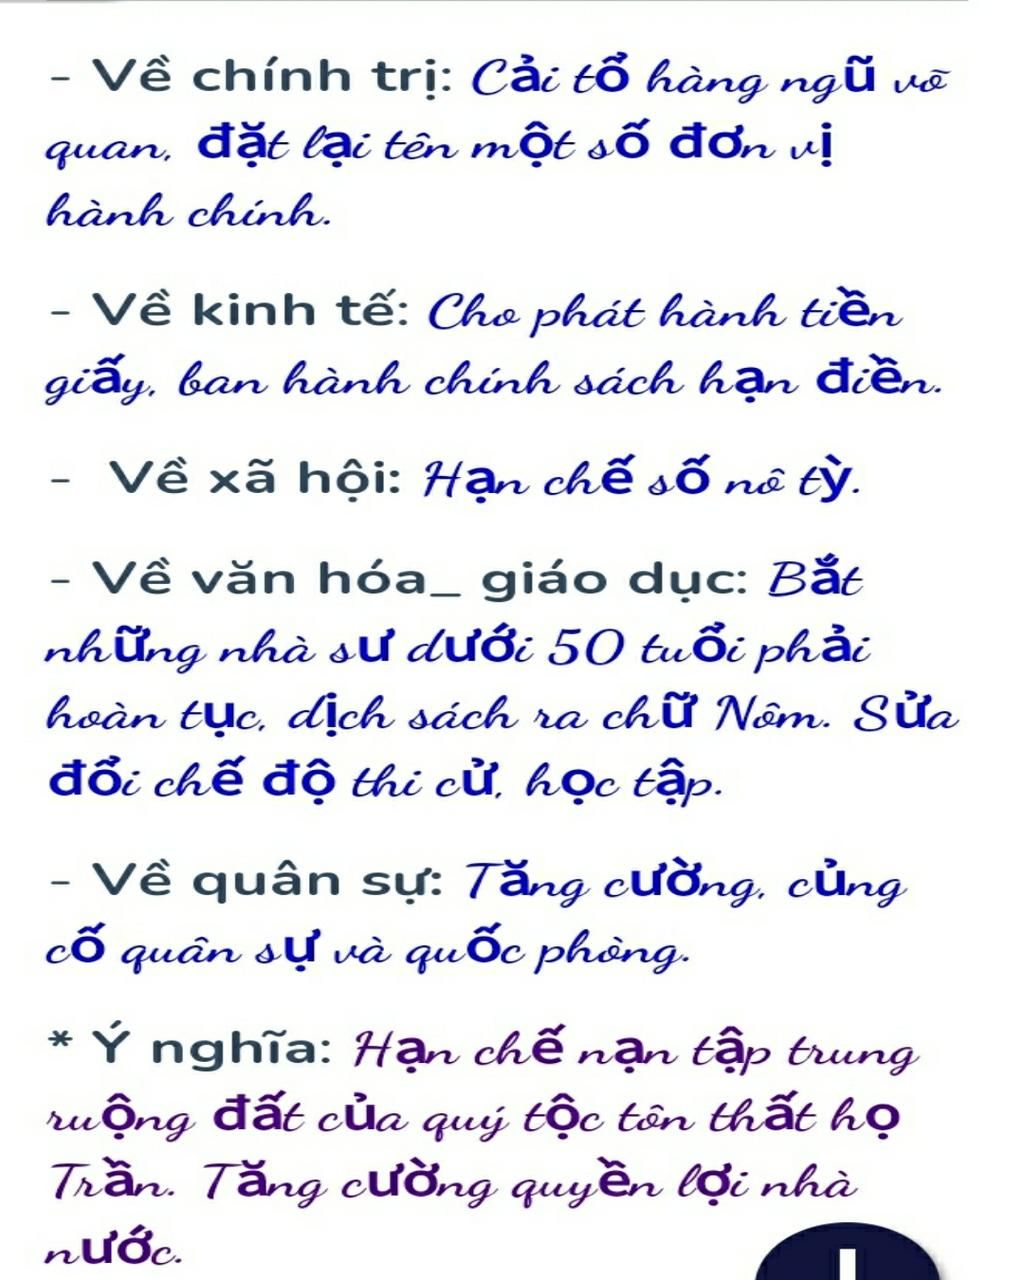 - Về chính trị: Cải tổ hàng ngũ võ
quan, đặt lại tên một số đơn vị
hành chính.
- Về kinh tế: Cho phát hành tiền
giấy, ban hành chính sách hạn điền.
- Về xã hội: Hạn chế số nô tỳ.
- Về văn hóa_ giáo dục: Bắt
những nhà sư dưới 50 tuổi phải
hoàn tục, dịch sách ra chữ Nôm. Sửa
đổi chế độ thi cử, học tập.
- Về quân sự: Tăng cường, củng
cố quân sự và quốc phòng.
* Ý nghĩa: Hạn chế nạn tập trung
ruộng đất của quý tộc tôn thất họ
Trần. Tăng cường quyền lợi nhà
nước.